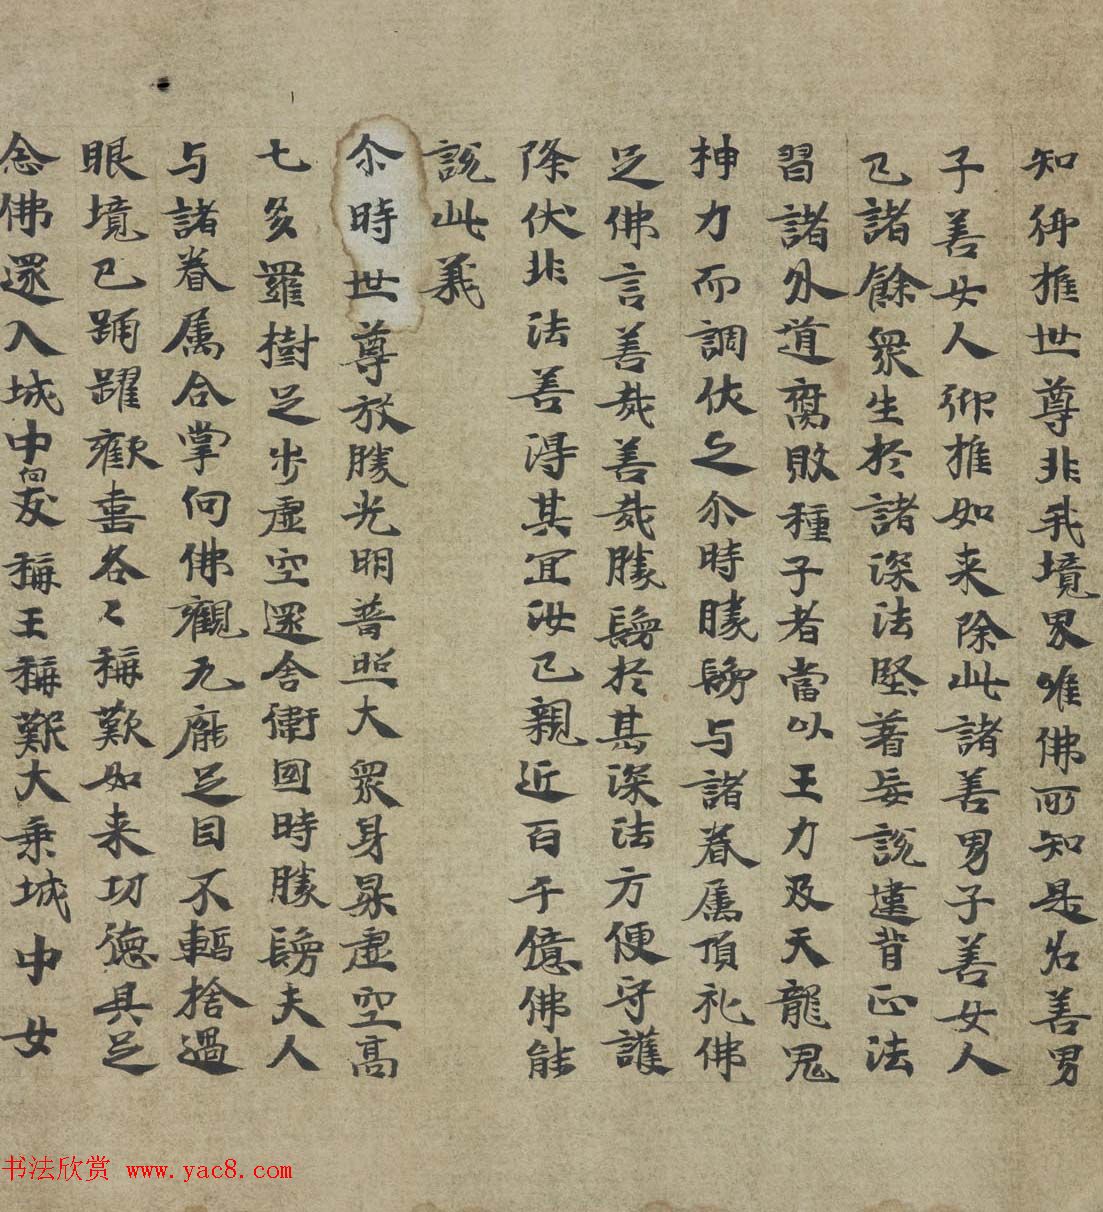 知仰推世尊非我境界唯佛所知是名善男
子善女人仰推如来除此諸善男子善女人
已諸餘衆生於諸深法堅著妄說違背正法
習諸外道腐敗種子者當以王力及天龍鬼
神力而調伏之尒時勝鬘与諸眷属頂礼佛
足佛言善哉善哉勝鬘於甚深法方便守護
降伏非法善得其宜汝已親近百千億佛能
說此義
尒時世尊放勝光明普照大衆身昇虚空高
七多羅樹足步虚空還舍衛國時勝鬘夫人
与諸眷属合掌向佛觀无厭足目不暫捨過
眼境已踊躍歡喜各々稱歎如来功德具足
念佛還入城中向友稱王稱歎大乗城中女
书法欣赏 www.yac8.com